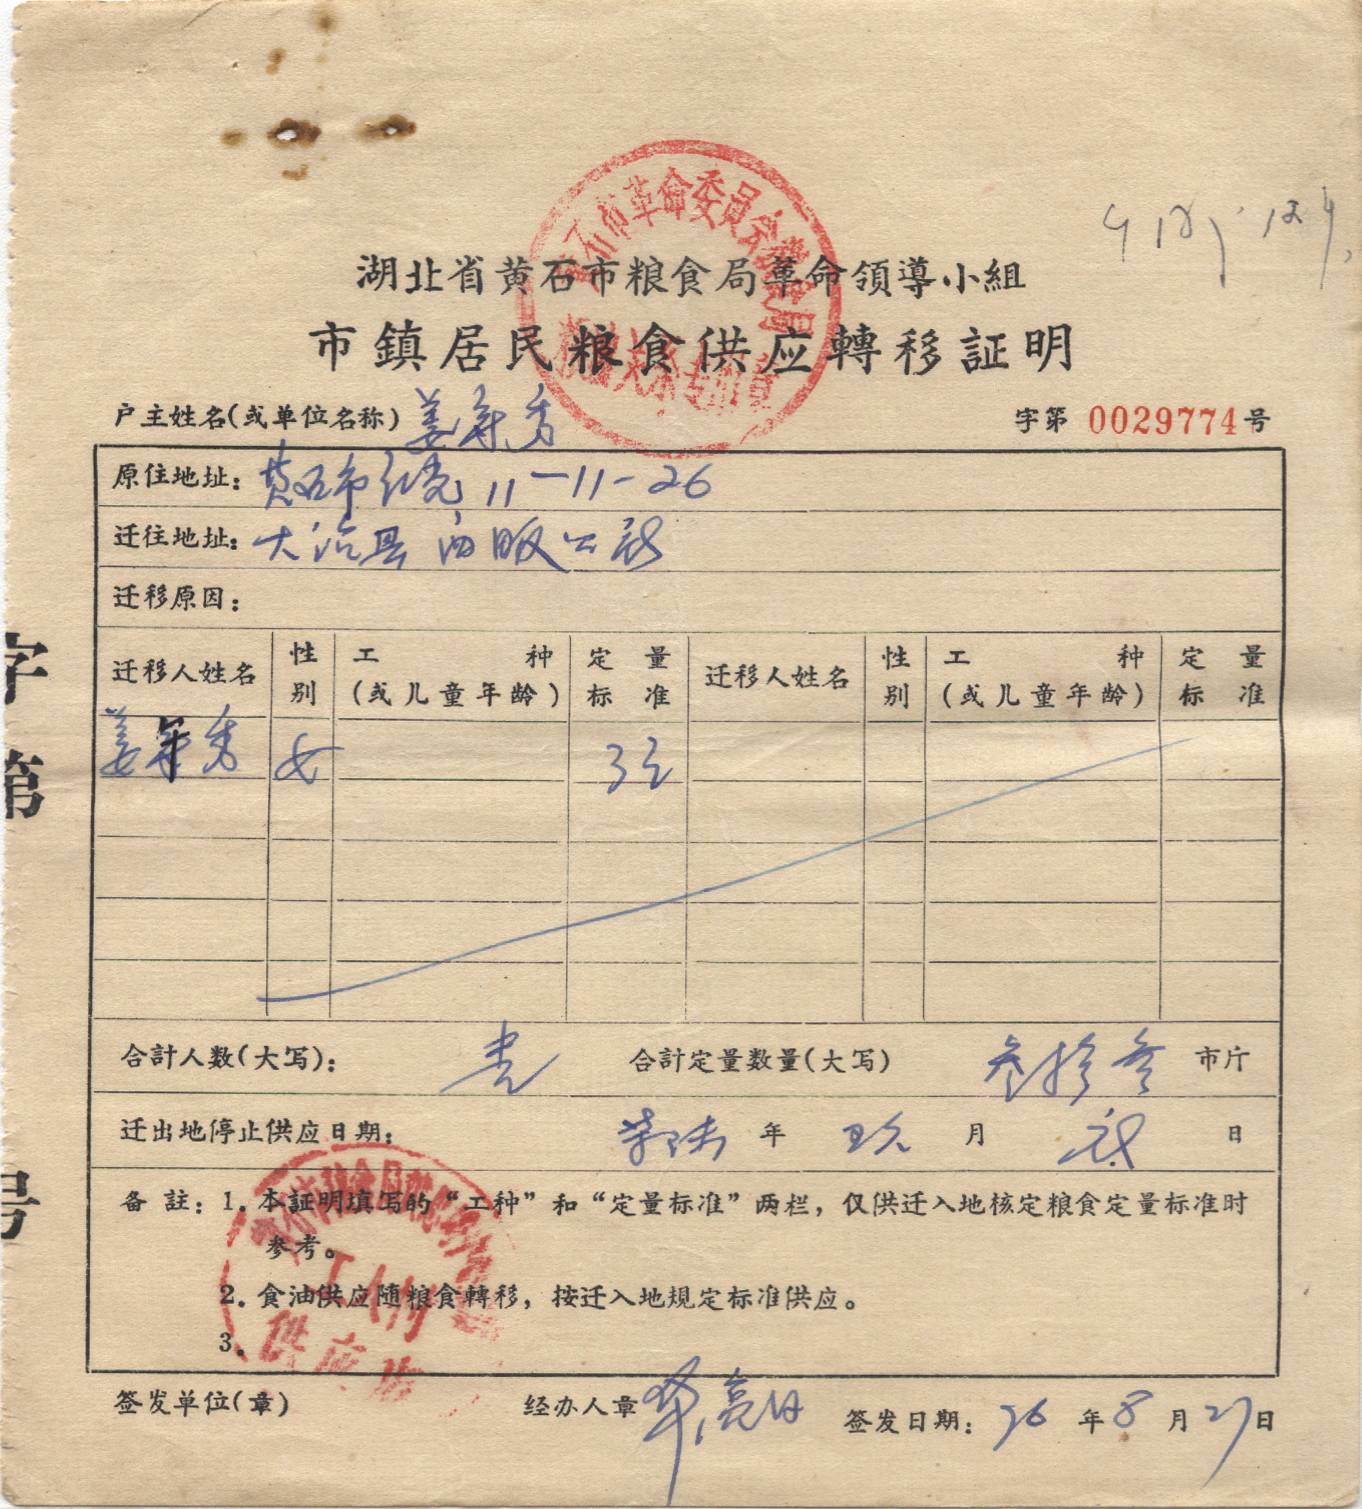 湖北省黄石市粮食局革命领導小組
市鎮居民粮食供应轉移証明
户主姓名(或单位名称) 姜年秀
字第 0029774 号
原住地址: 黄石市红光 11-11-26
迁往地址: 大冶县 还地 公社
迁移原因:
迁移人姓名 性别 工种(或儿童年龄) 定量标准 迁移人姓名 性别 工种(或儿童年龄) 定量标准
姜年秀 女 33
合計人数(大写): 壹 合計定量数量(大写) 叁拾叁 市斤
迁出地停止供应日期: 柒陆 年 玖 月 日
备註: 1. 本証明填写的“工种”和“定量标准”两栏,仅供迁入地核定粮食定量标准时
参考。
2. 食油供应随粮食轉移,按迁入地規定标准供应。
3.
签发单位(章) 经办人章 签发日期: 76 年 8 月 27 日
字第 号